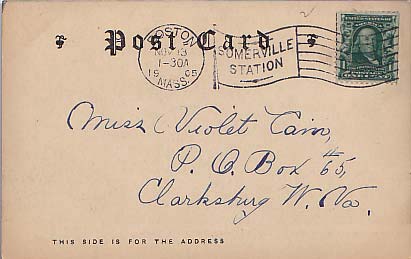 Post Card
BOSTON
NOV 13
1-30A
1905
MASS.
SOMERVILLE
STATION
Miss Violet Cain,
P. O. Box #65,
Clarksburg W. Va.
THIS SIDE IS FOR THE ADDRESS